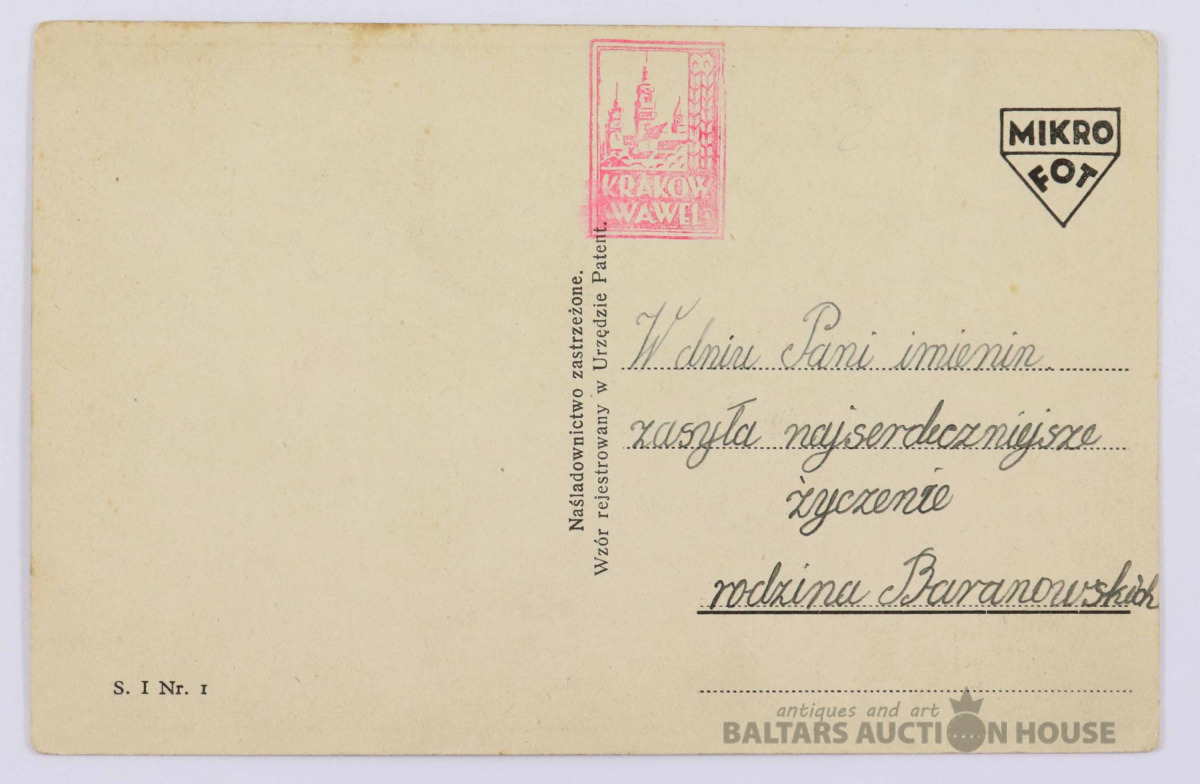 KRAKÓW
WAWEL
MIKRO
FOT
Naśladownictwo zastrzeżone.
Wzór rejestrowany w Urzędzie Patent.
W dniu Pani imienin
zasyła najserdeczniejsze
życzenie
rodzina Baranowskich
S. I Nr. 1
antiques and art
BALTARS AUCTION HOUSE